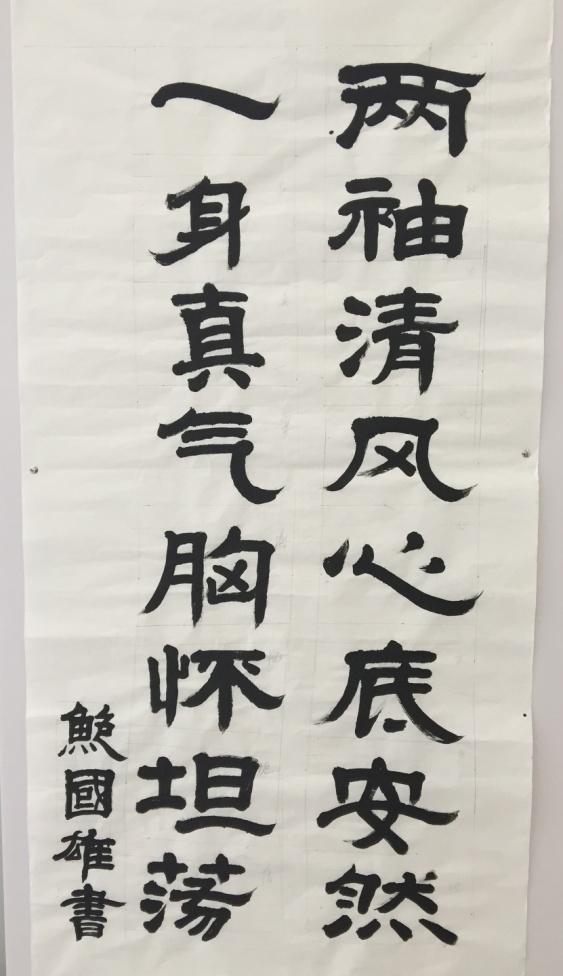 两袖清风心底安然
一身真气胸怀坦荡
鲍國雄書